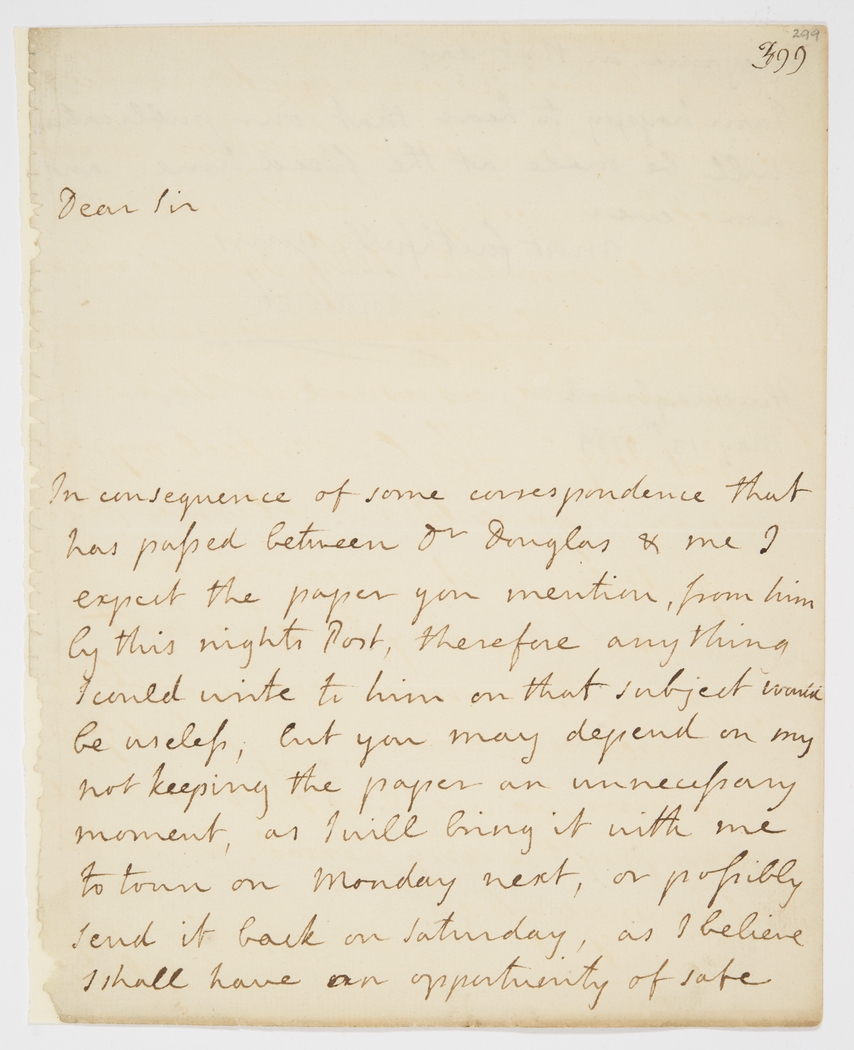 299
399
Dear Sir
In consequence of some correspondence that
has paſsed between Dr Douglas & me I
expect the paper you mention, from him
by this nights Post, therefore any thing
I could write to him on that subject would
be useleſs, but you may depend on my
not keeping the paper an unneceſsary
moment, as I will bring it with me
to town on Monday next, or poſsibly
send it back on Saturday, as I believe
I shall have an opportunity of safe